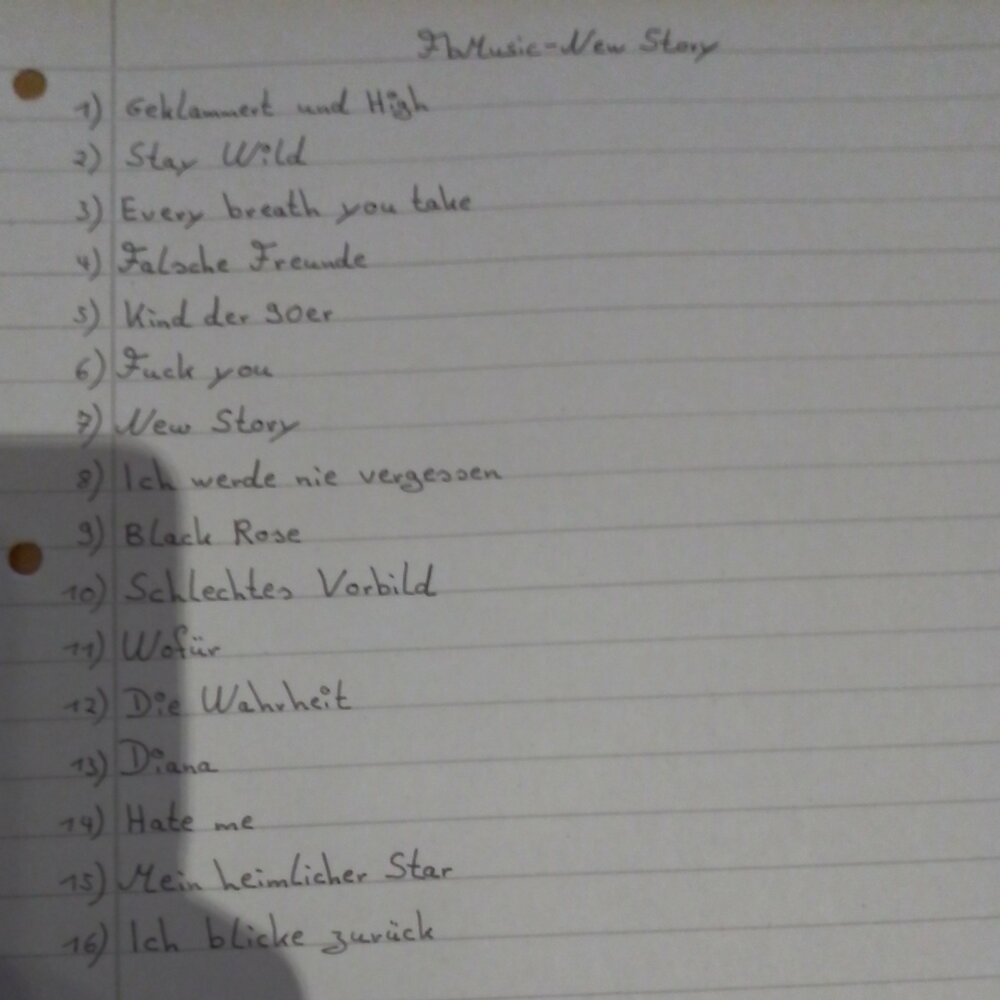 FWMusic-New Story
1) Geklammert und High
2) Stay Wild
3) Every breath you take
4) Falsche Freunde
5) Kind der 90er
6) Fuck you
7) New Story
8) Ich werde nie vergessen
9) Black Rose
10) Schlechtes Vorbild
11) Wofür
12) Die Wahrheit
13) Diana
14) Hate me
15) Mein heimlicher Star
16) Ich blicke zurück